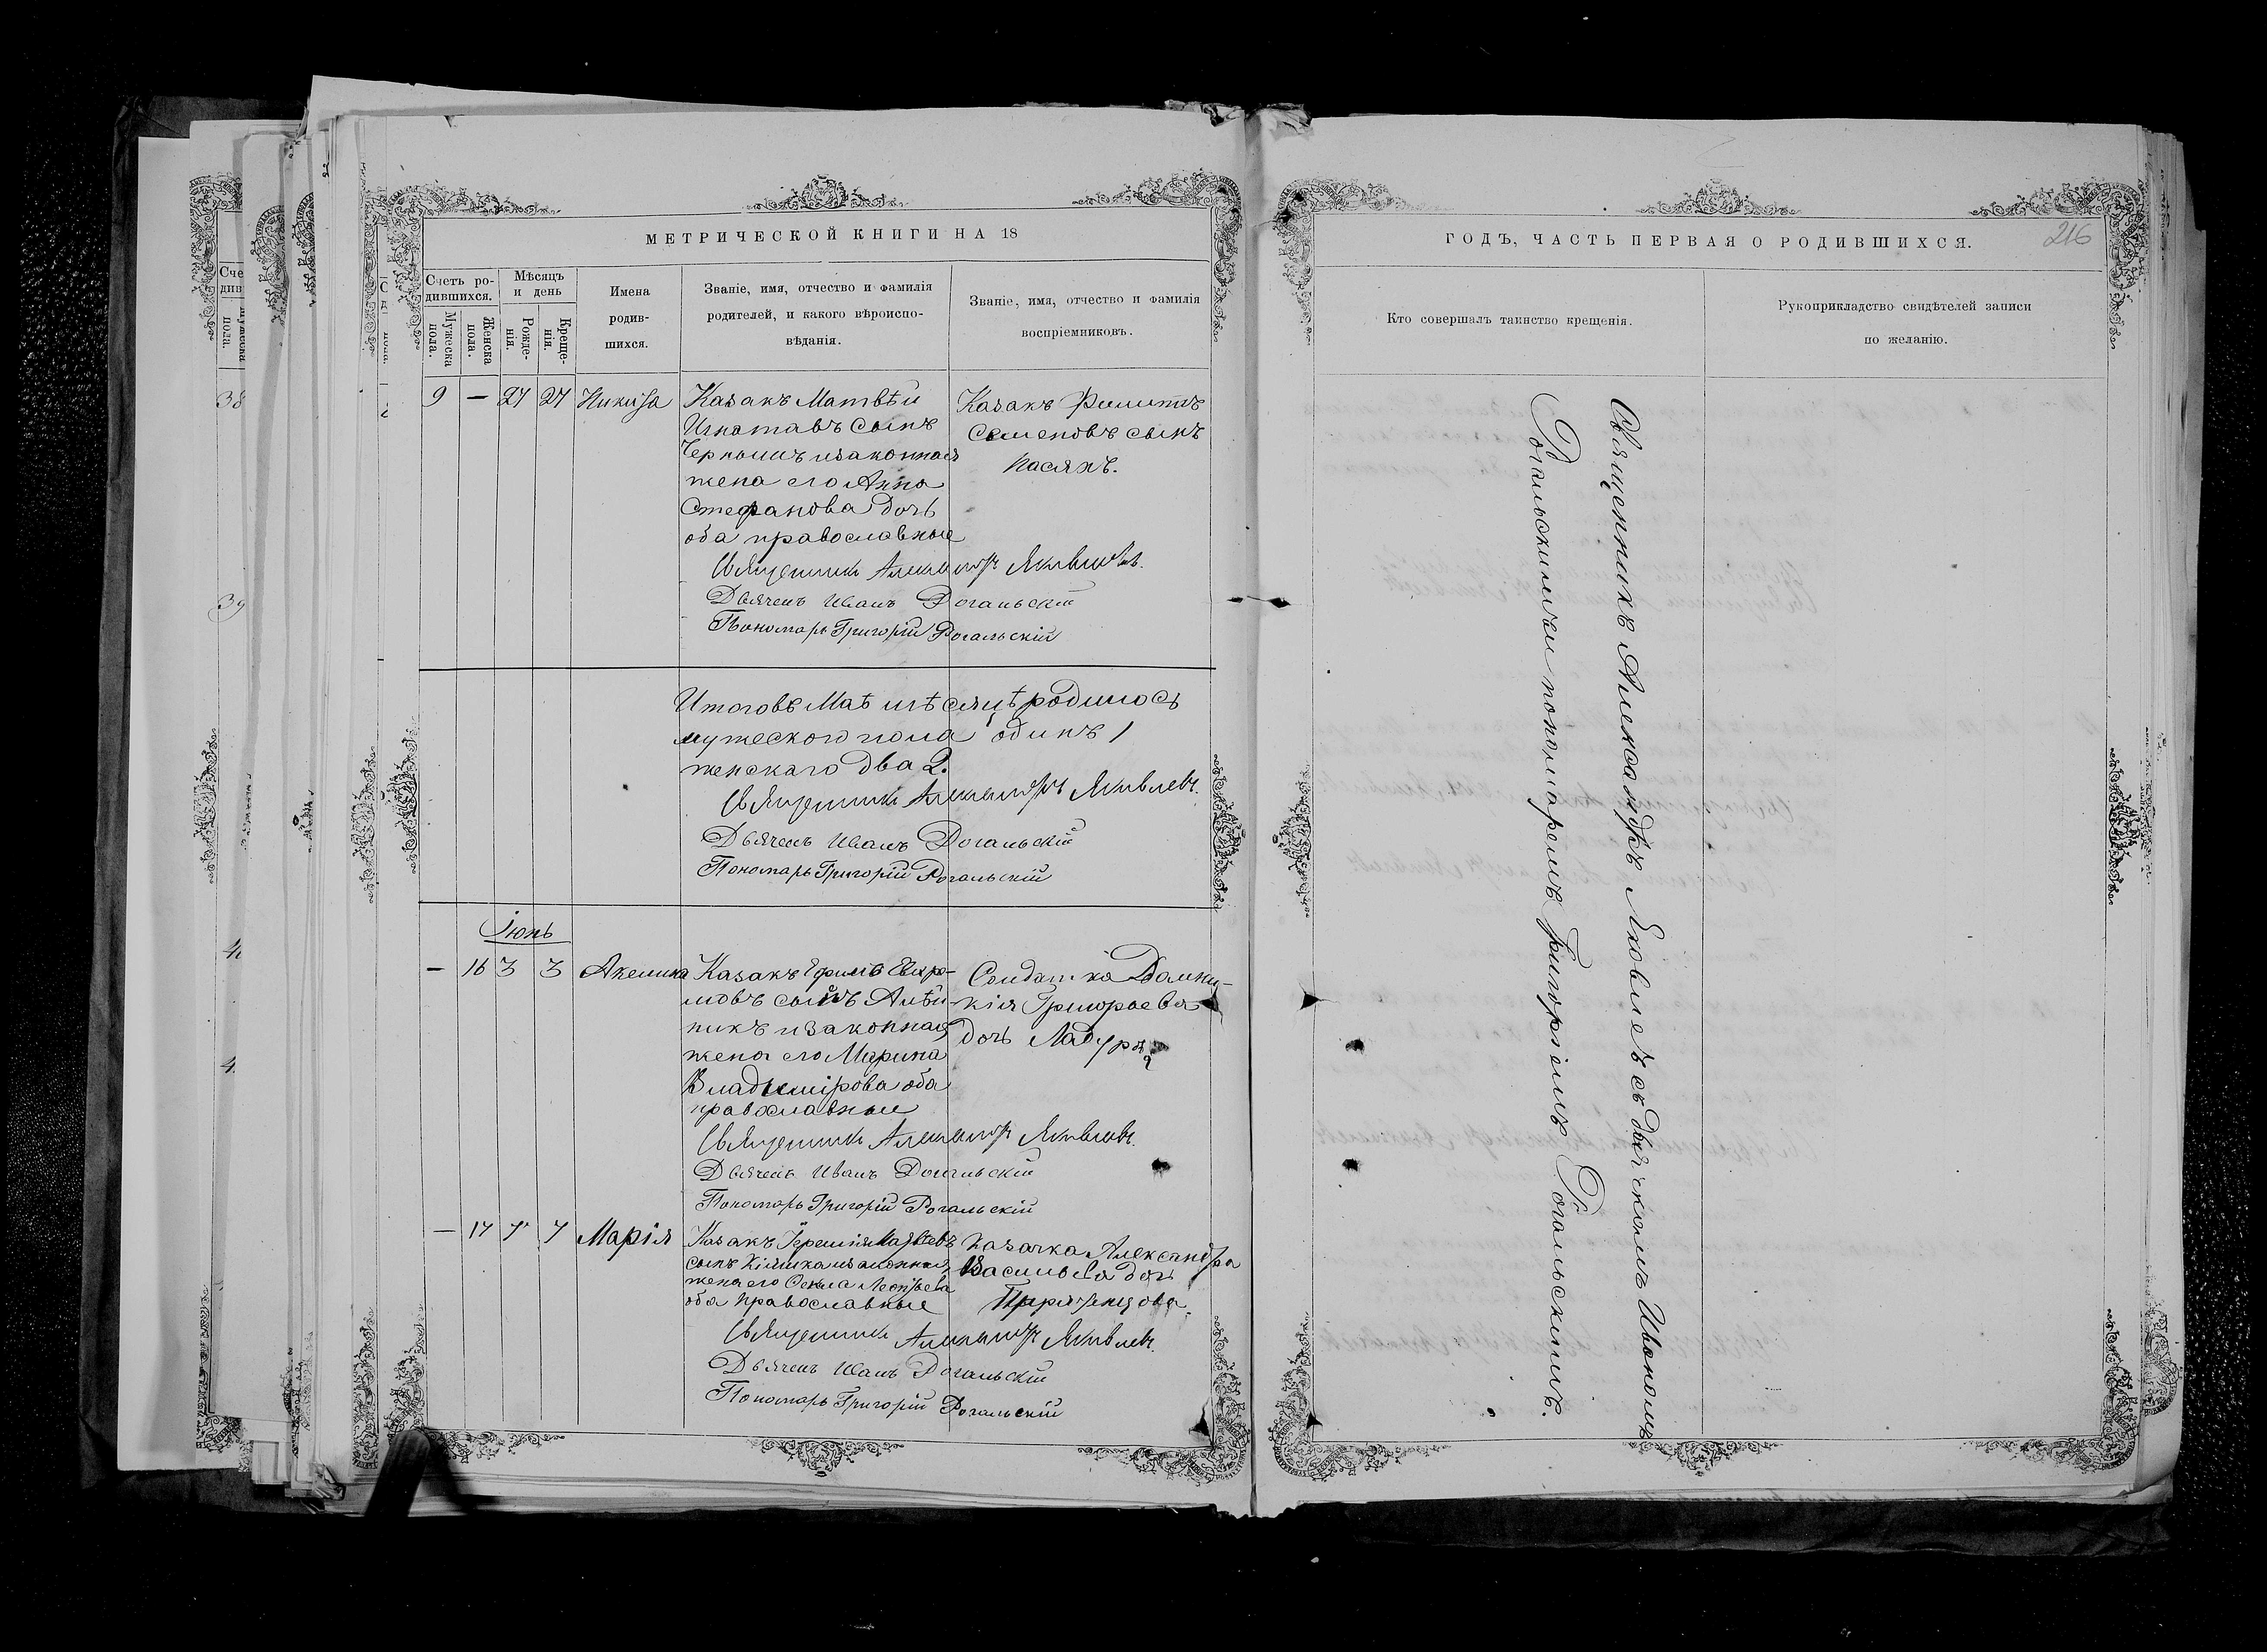 МЕТРИЧЕСКОЙ КНИГИ НА 18
Счетъ ро-
дившихся.
Мужеска
пола.
Женска
пола.
Мѣсяцъ
и день
Рожде-
нія.
Креще-
нія.
Имена
родив-
шихся.
Званіе, имя, отчество и фамилія
родителей, и какого вѣроиспо-
вѣданія.
Званіе, имя, отчество и фамилія
воспріемниковъ.
9 — 27 27 Никита
Казакъ Матвѣй
Игнатавъ сынъ
Чернышъ изаконная
жена его Анна
Стефанова дочь
оба православные
Казакъ Филиппъ
Семеновъ сынъ
Касянъ.
Священникъ Александръ Яковлевъ.
Дьячекъ Иванъ Рогальскій
Пономарь Григорій Рогальскій
Итоговъ Маѣ мѣсяцѣ родилось
мужескаго пола одинъ 1
женскаго два 2.
Священникъ Александръ Яковлевъ.
Дьячекъ Иванъ Рогальскій
Пономарь Григорій Рогальскій
Іюнь
— 16 3 3 Акелина
Казакъ Ефимъ
сынъ
никъ изаконная
жена его Марина
Владимірова оба
православные
Солдатка Домни-
кія Григорьева
дочь
Священникъ Александръ Яковлевъ.
Дьячекъ Иванъ Рогальскій
Пономарь Григорій Рогальскій
— 17 7 7 Марія
Казакъ Іеремія Матвѣевъ
сынъ изаконная
жена его Леонтьева
оба православные
Казачка Александра
Васильева дочь
Священникъ Александръ Яковлевъ.
Дьячекъ Иванъ Рогальскій
Пономарь Григорій Рогальскій
ГОДЪ, ЧАСТЬ ПЕРВАЯ О РОДИВШИХСЯ.
216
Кто совершалъ таинство крещенія.
Рукоприкладство свидѣтелей записи
по желанію.
Священникъ Александръ Яковлевъ съ дьячкомъ Иваномъ
Рогальскимъ и пономаремъ Григоріемъ Рогальскимъ.
38
39